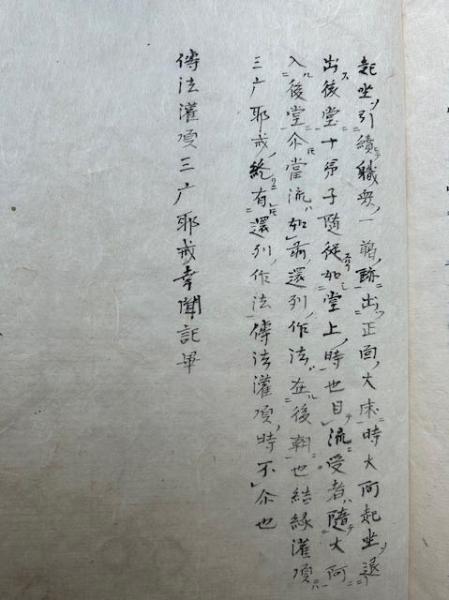 起坐引續職衆一﨟跡出正面大床時大阿起坐退
出後堂十弟子隨從如堂上時也自流受者隨大阿
入後堂尒當流如前還列作法在後朝也結緣灌頂
三广耶戒終有還列作法傳法灌頂時不尒也
傳法灌頂三广耶戒幸聞記畢